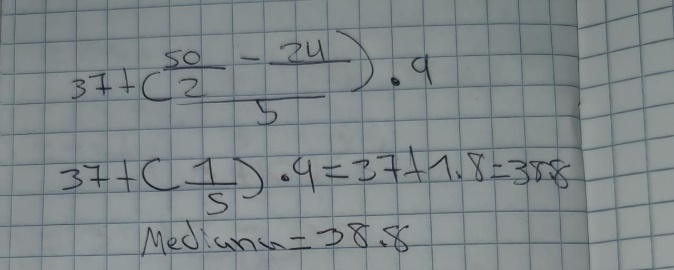 37+(50/2 - 24 / 5) . 9
37+(1/5) .9=37+1.8=38.8
Mediana=38.8